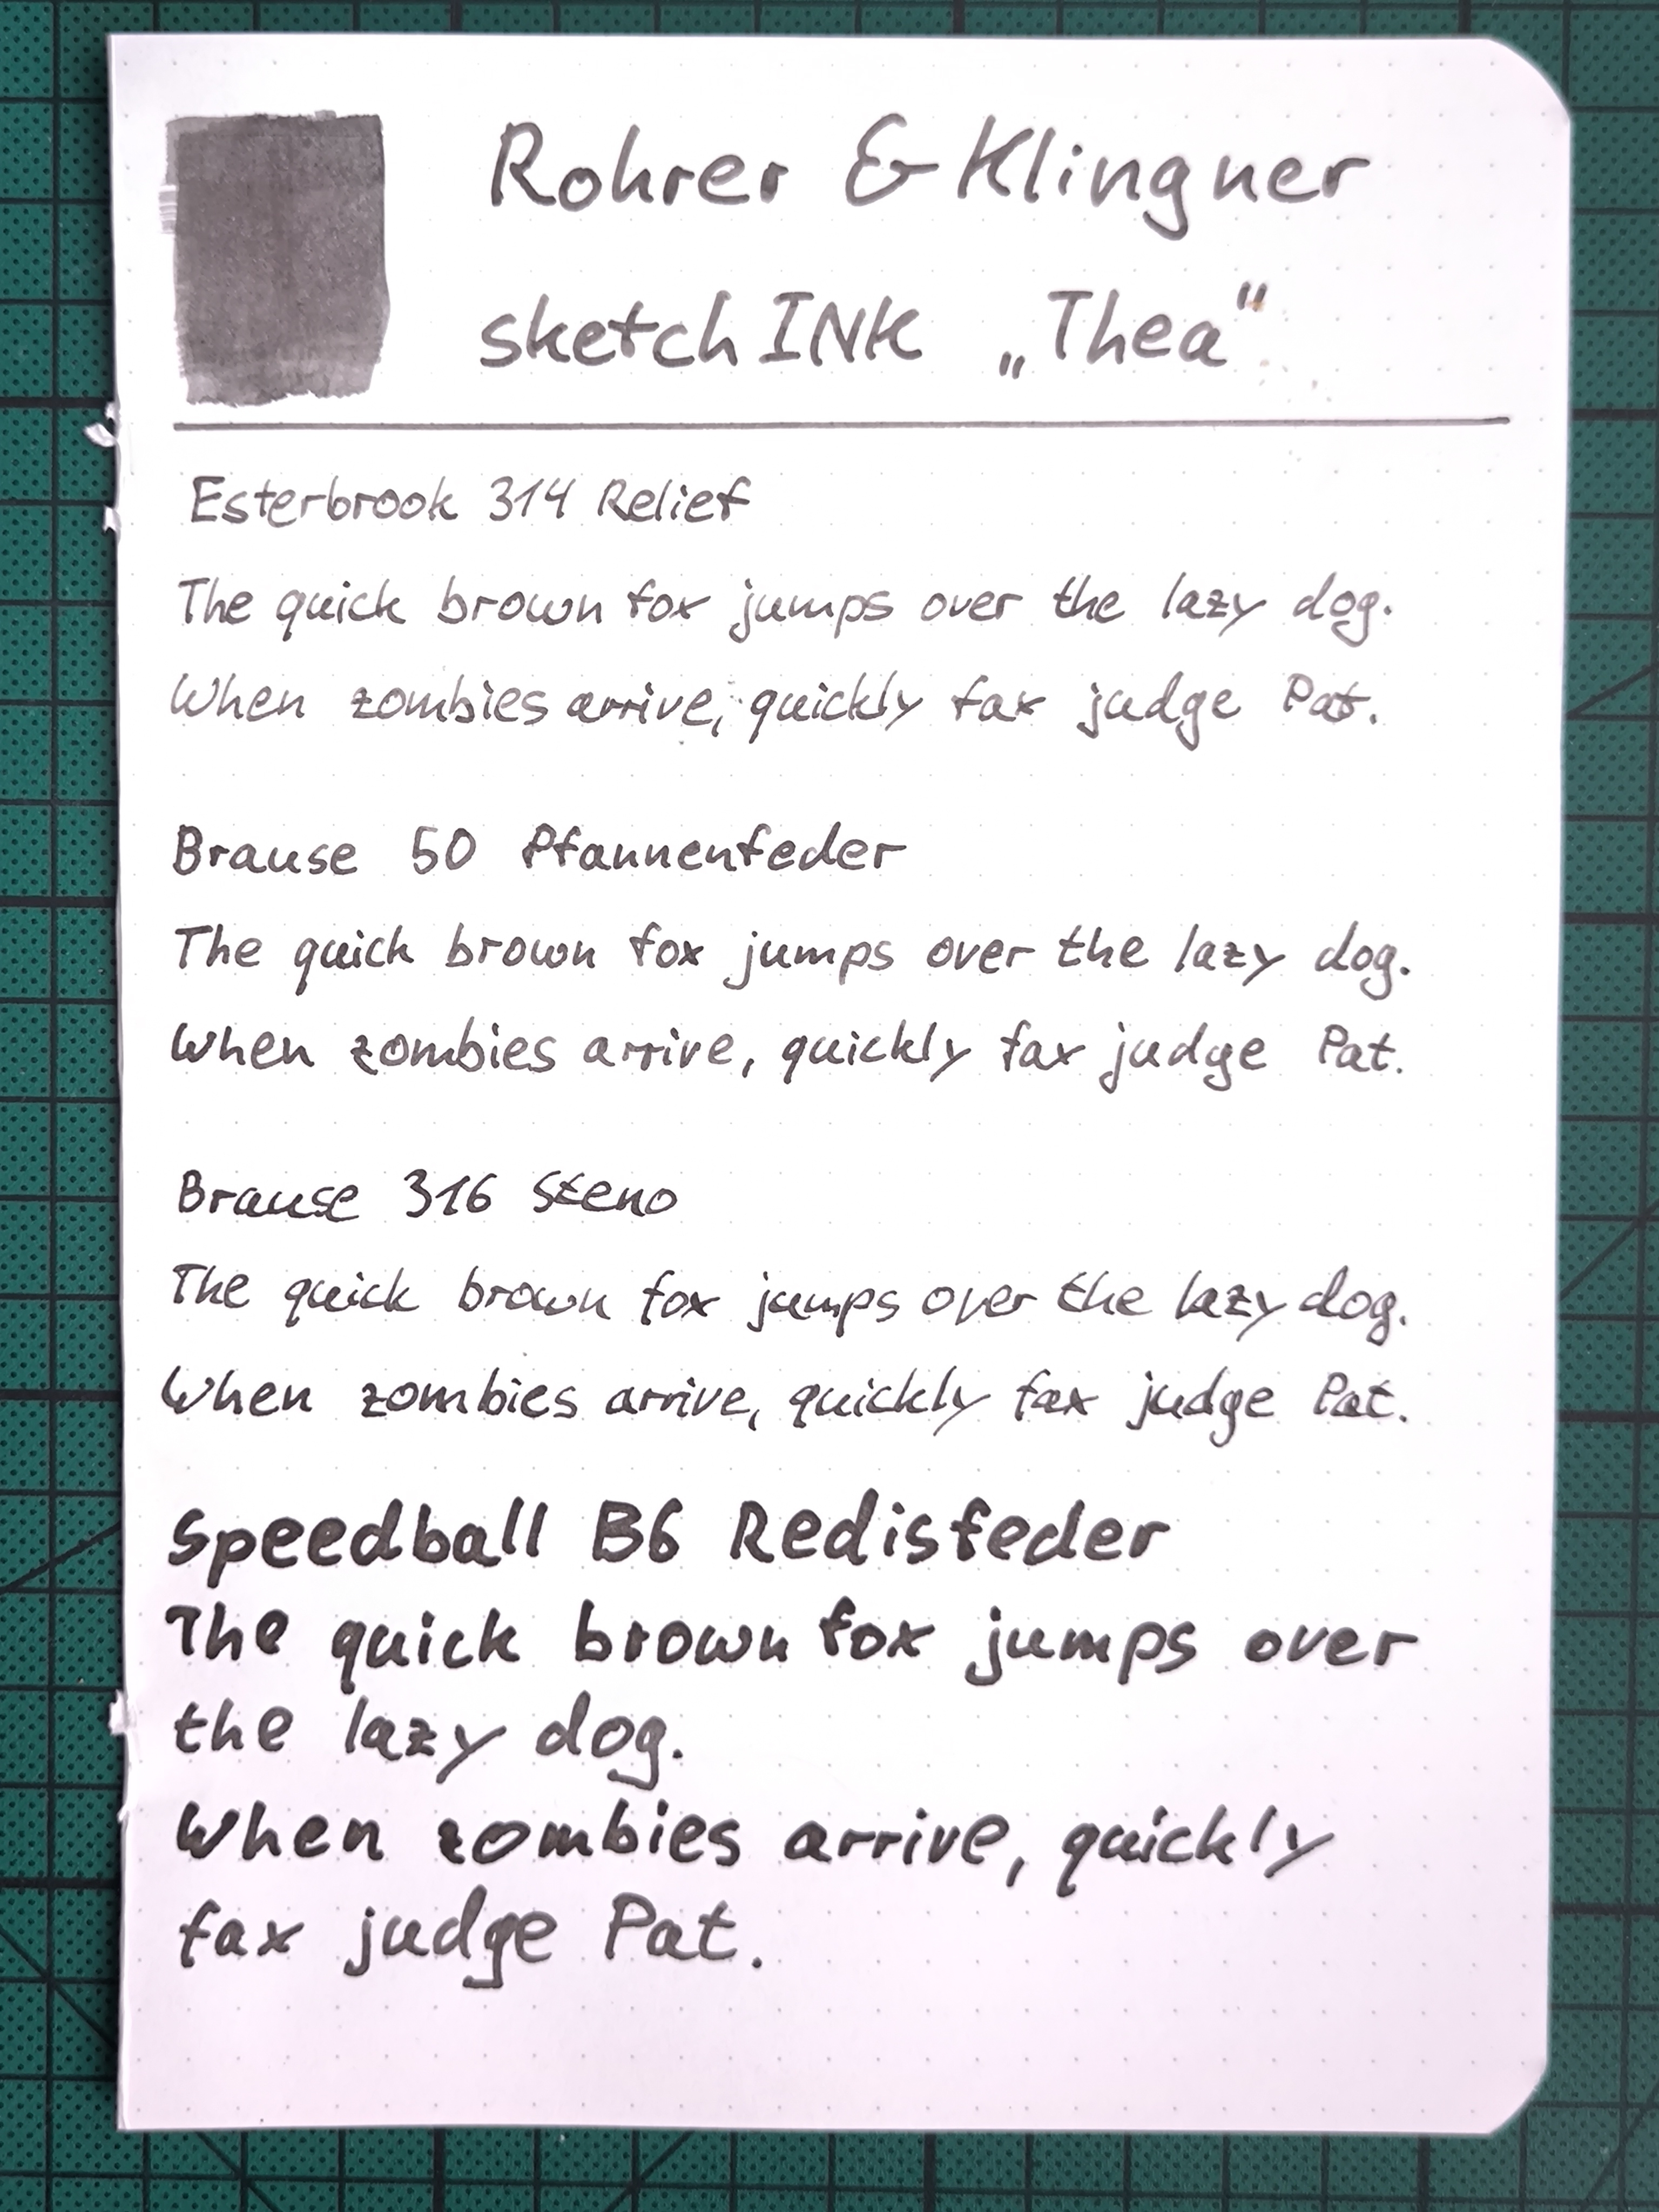 Rohrer & Klingner
sketchINK „Thea“
Esterbrook 314 Relief
The quick brown fox jumps over the lazy dog.
When zombies arrive, quickly fax judge Pat.
Brause 50 Pfannenfeder
The quick brown fox jumps over the lazy dog.
When zombies arrive, quickly fax judge Pat.
Brause 316 Steno
The quick brown fox jumps over the lazy dog.
When zombies arrive, quickly fax judge Pat.
Speedball B6 Redisfeder
The quick brown fox jumps over
the lazy dog.
When zombies arrive, quickly
fax judge Pat.